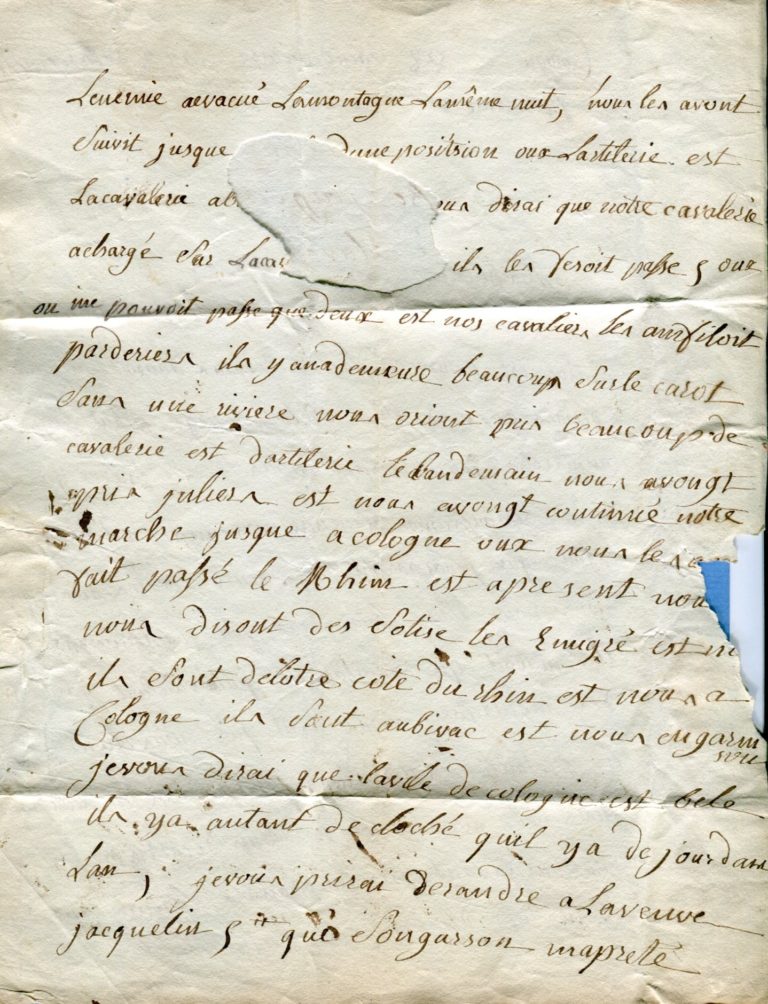 Lenemie aevacué Lamontagne Lamême nuit, nous les avont
Suivit jusque dune positsion oux Lartilerie est
Lacavalerie ab dirai que notre cavalerie
achargé Sur Lacav ils les feroit passe 5 oux
ou ine pouvoit passe que deux est nos cavaliers les anfiloit
parderiers ils yanademeure beaucoup Surle carot
Sans une riviere nous oriont pris beaucoup de
cavalerie est dartilerie lelandemain nous avongt
pris juliers est nous avongt continué notre
marche jusque a cologne oux nous les
fait passé le Rhin est apresent nou
nous disont des Sotise les Emigré est n
ils Sont delotre cote du rhin est nous a
Cologne ils Sont aubivac est nous engarni
son
jevous dirai que lavile de cologne est bele
ils ya autant de cloché quil ya de jourdans
Lan, jevous prirai derandre a Laveuve
jacquelin 5 tt que Songarson mapreté